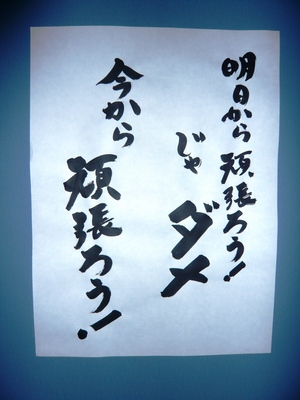 明日から頑張ろう!
じゃ
ダメ
今から
頑張ろう!